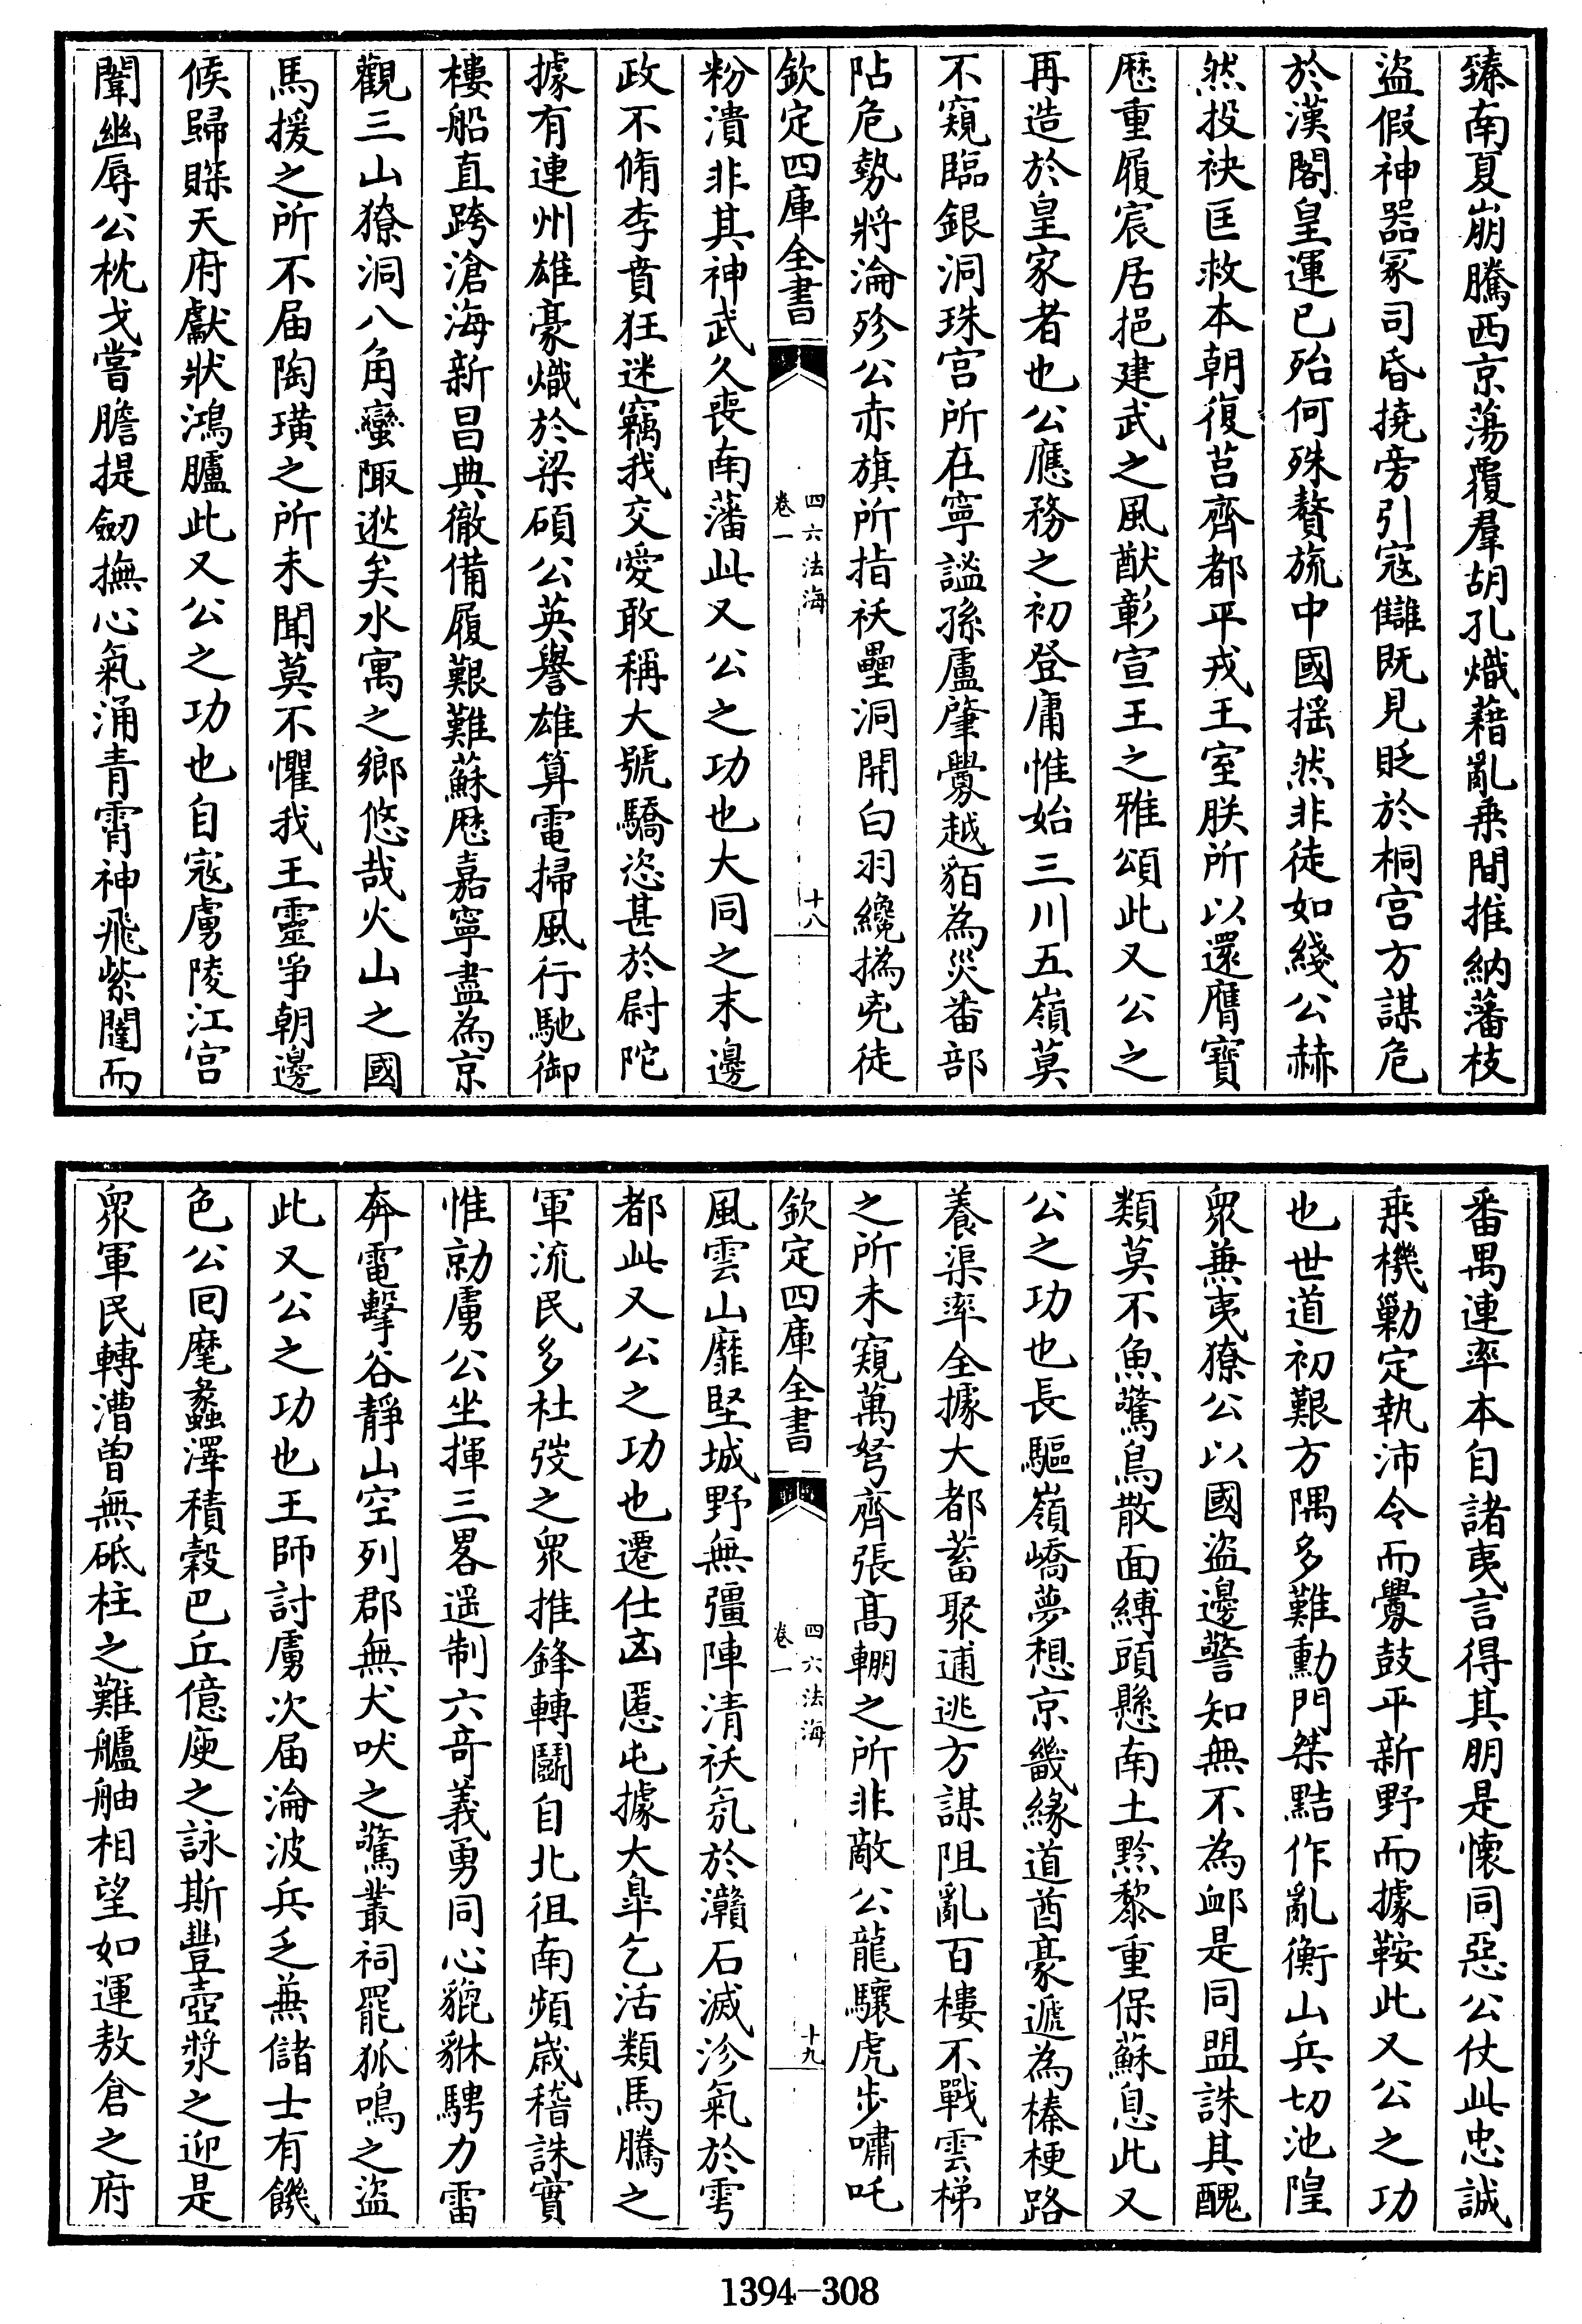 臻南夏崩騰西京蕩覆羣胡孔熾藉亂乗間推納藩枝
盜假神器冢司昏撓旁引寇讎既見貶於桐宫方謀危
於漢閣皇運已殆何殊贅旒中國揺然非徒如綫公赫
然投袂匡救本朝復莒齊都平戎王室朕所以還膺寳
厯重履宸居挹建武之風猷彰宣王之雅頌此又公之
再造於皇家者也公應務之初登庸惟始三川五嶺莫
不窺臨銀洞珠宫所在寧謐孫盧肇釁越貊為災番部
阽危勢將淪殄公赤旗所指祅壘洞開白羽纔撝兇徒
欽定四庫全書
四六法海
卷一
十八
粉潰非其神武久喪南藩此又公之功也大同之末邊
政不脩李賁狂迷竊我交愛敢稱大號驕恣甚於尉陀
據有連州雄豪熾於梁碩公英譽雄算電掃風行馳御
樓船直跨滄海新昌典徹備履艱難蘇厯嘉寧盡為京
觀三山獠洞八角蠻陬逖矣水寓之鄉悠哉火山之國
馬援之所不届陶璜之所未聞莫不懼我王靈爭朝邊
候歸賝天府獻狀鴻臚此又公之功也自寇虜陵江宫
闈幽辱公枕戈嘗膽提劒撫心氣涌青霄神飛紫闥而
番禺連率本自諸夷言得其朋是懷同惡公仗此忠誠
乗機勦定執沛令而釁鼓平新野而據鞍此又公之功
也世道初艱方隅多難勳門桀黠作亂衡山兵切池隍
衆兼夷獠公以國盜邊警知無不為䘏是同盟誅其醜
類莫不魚驚鳥散面縛頭懸南土黔黎重保蘇息此又
公之功也長驅嶺嶠夢想京畿緣道酋豪遞為榛梗路
養渠率全據大都蓄聚逋逃方謀阻亂百樓不戰雲梯
之所未窺萬弩齊張髙輣之所非敵公龍驤虎步嘯吒
欽定四庫全書
四六法海
卷一
十九
風雲山靡堅城野無彊陣清祅氛於灨石滅沴氣於雩
都此又公之功也遷仕凶慝屯據大臯乞活類馬騰之
軍流民多杜弢之衆推鋒轉鬬自北徂南頻歲稽誅實
惟勍虜公坐揮三畧遥制六竒義勇同心貔貅騁力雷
奔電擊谷靜山空列郡無犬吠之驚叢祠罷狐鳴之盜
此又公之功也王師討虜次届淪波兵乏兼儲士有饑
色公囘麾蠡澤積糓巴丘億庾之詠斯豐壺漿之迎是
衆軍民轉漕曽無砥柱之難艫舳相望如運敖倉之府
1394-308